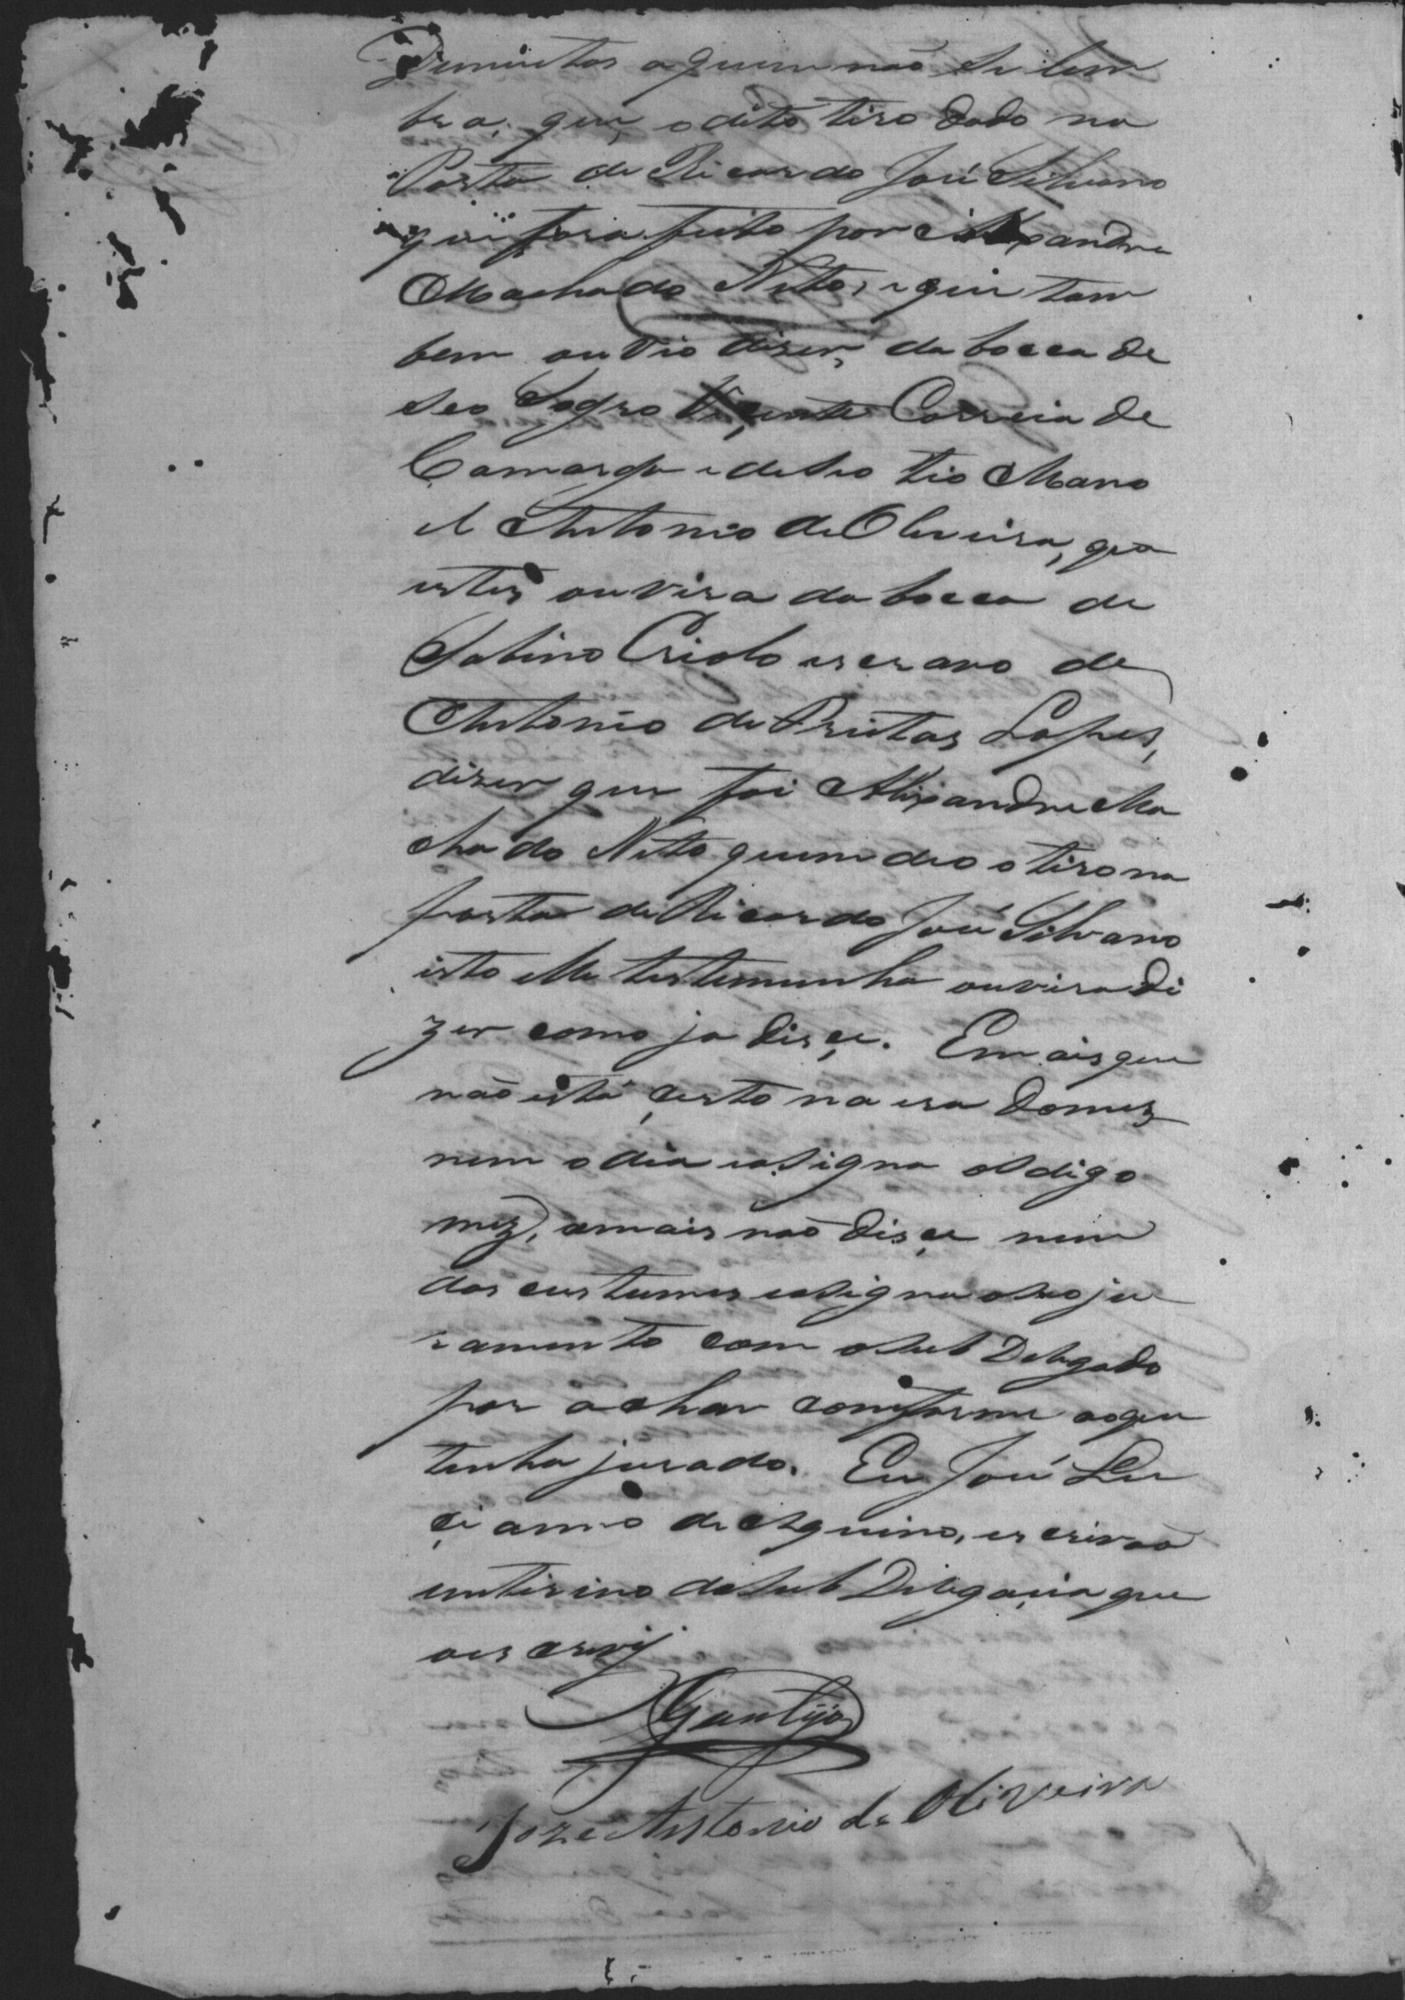 Demintas aquem não se lem
bra, que, o dito tiro dado na
Porta de Ricardo José Silvano
que fora feito por Alixandre
Machado Neto, e que tam
bem ouvio dizer, da bocca de
seo Sogro Viçente Correia de
Camargo e de seo tio Mano
el Antonio de Oliveira, que
estes ouvira da bocca de
Sabino Criolo escravo de
Antonio de Freitas Lopes,
dizer que foi Alixandre Ma
chado Neto quem deo o tiro na
porta de Ricardo José Silvano
isto elle testemunha ouvira di
zer como ja disçe. E mais que
não está çerto na era do mez
nem o dia e asigna od digo
mez, e mais não disçe nem
dos custumes e asigna o seo ju
ramento com o sub Delegado
por achar comforme ao que
tinha jurado. Eu José Lu
çianno de Aquino, escrivão
enterino da sub Delegaçia que
o escrevij
Joze Antonio de Oliveira